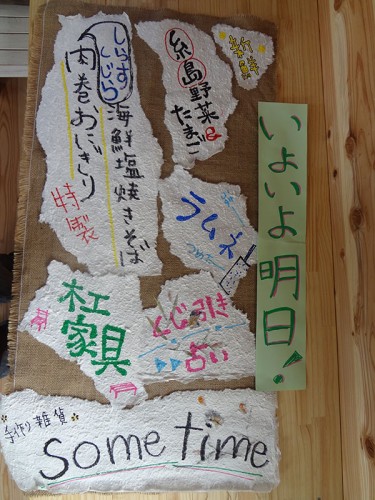 新鮮
糸島野菜
たまご
しらす
くじら
海鮮塩焼きそば
肉巻おにぎり
特製
ラムネ
つめた〜い
いよいよ明日!
木工
家具
くじ引き
占い
手作り雑貨
some time